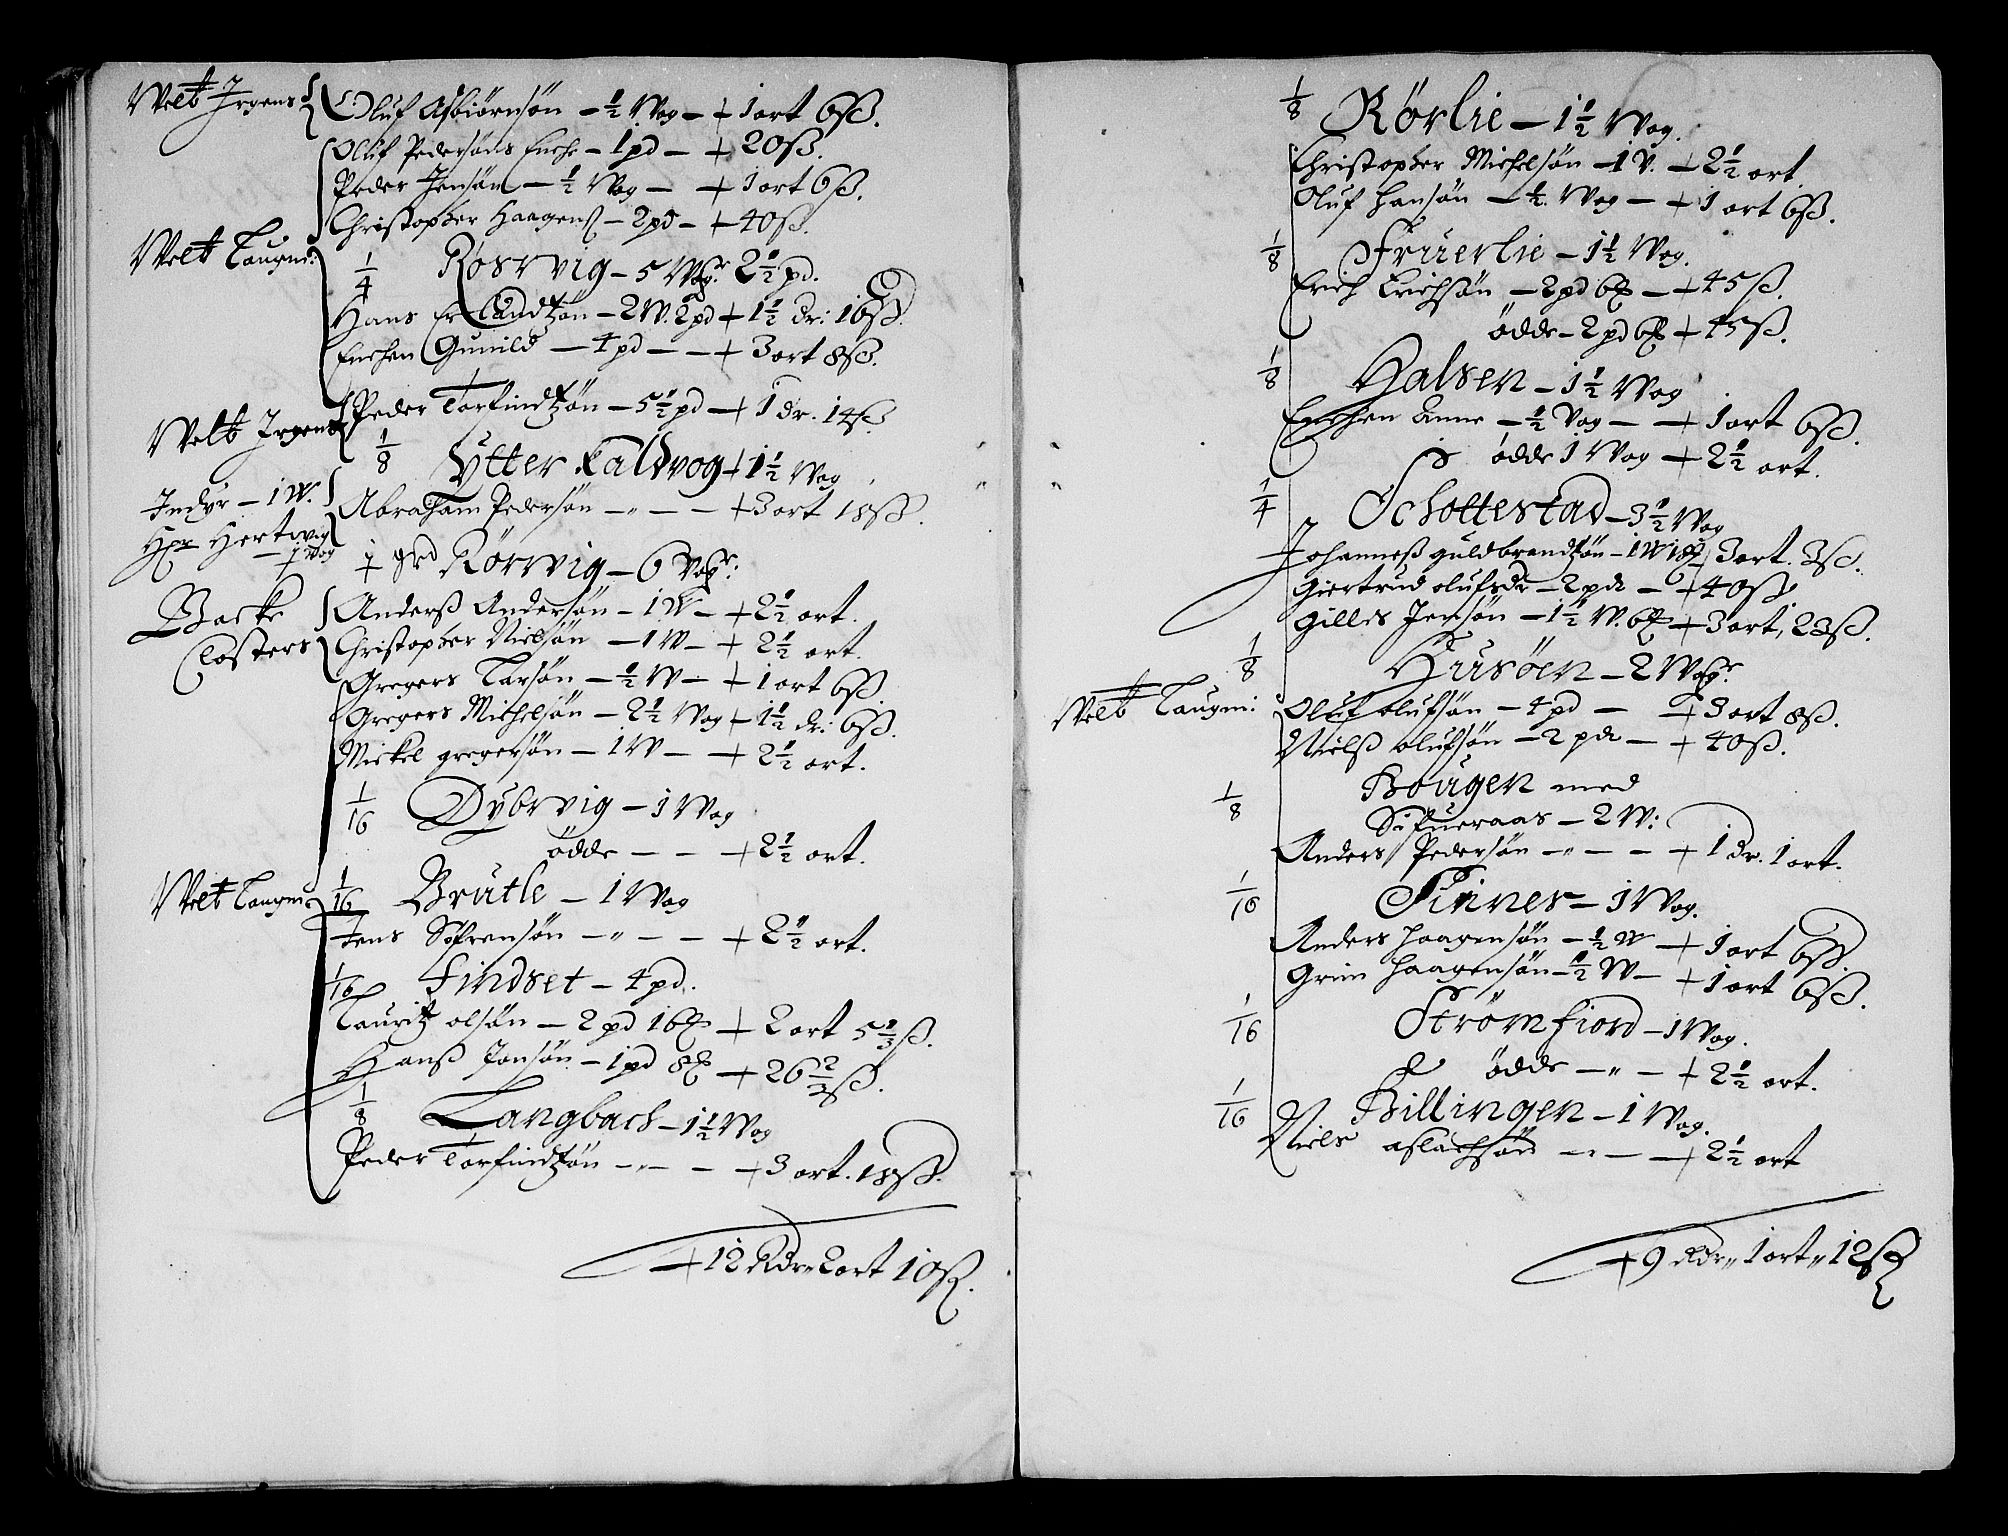 Welb Irgens
Oluf Asbiørnsøn – ½ Wog – + 1 ort 6ß.
Oluf Pedersøns Enche – 1 pd – + 20ß.
Peder Jensøn – ½ Wog – + 1 ort 6ß.
Christopher Haagenß – 2 pd – + 40ß.
Welb Laugm:
1/4 Røsrvig – 5 Wogr. 2½ pd.
Hans Erlandtzøn – 2 W. 2 pd + 1½ dr: 16ß.
Enchen Gunild – 4 pd – – + 3 ort 8ß.
Welb Irgens
Peder Torfindtzøn – 5½ pd – + 1 dr. 14ß.
1/8 Ytter Kaldvog + 1½ Wog
Indyr – 1 W.
Hpr Hertwig
– ½ Wog
Abraham Pedersøn – „ – – + 3 ort 18ß.
Rørvig – 6 Vogr:
Backe
Closters
Anderß Andersøn – 1 W – + 2½ ort.
Christopher Nielsøn – 1 W – + 2½ ort.
Gregers Larsøn – ½ W – + 1 ort 6ß.
Gregers Michelsøn – 2½ Wog + 1½ dr: 6ß.
Mickel gregersøn – 1 W – + 2½ ort.
1/16 Dybrvig – 1 Wog
ödde – – + 2½ ort.
Welb Laugm:
1/16 Brutle – 1 Wog
Jens Søfrensøn – „ – – + 2½ ort.
1/16 Findset – 4 pd.
Lauritz olsøn – 2 pd 16 – + 2 ort 5⅓ß.
Hanß Jonsøn – 1 pd 8 – + 26⅔ß.
1/8 Langbach – 1½ Wog
Peder Torfindtzøn – „ – – + 3 ort. 18ß.
+ 12 Rdr „ 2 ort 10ß.
1/8 Rørlie – 1½ Wog.
Christopher Michelsøn – 1 V. + 2½ ort
Oluf hansøn – ½ Wog – + 1 ort 6ß.
1/8 Fruerlie – 1½ Wog.
Erich Erichsøn – 2 pd 6 – + 45ß.
ödde – 2 pd 6 + 45ß.
1/8 Halsen – 1½ Wog
Enchen Anne – ½ Vog – + 1 ort 6ß.
ödde 1 Wog + 2½ ort.
1/4 Schottestad – 3½ Wog
Johanneß guldbrandtzøn – 1 W 18 + 3 ort. 3ß.
Giertrud olufsdr – 2 pd – + 40ß
Gilles Jensøn – 1½ W. 6 + 3 ort, 23ß.
1/8 Husøen – 2 Wogr.
Welb Laugm:
Oluf olufsøn – 4 pd – + 3 ort 8ß.
Nielß olufsøn – 2 pd – + 40ß.
1/8 Bougen med
Sifueraas – 2 W:
Anders Pedersøn – „ – – + 1 dr. 1 ort.
1/16 Finnes – 1 Wog.
Anders haagensøn – ½ W – + 1 ort 6ß
Grim haagensøn – ½ W – + 1 ort 6ß.
1/16 Strømfiord – 1 Wog.
ödde – „ – + 2½ ort.
1/16 Billingen – 1 Wog.
Niels aslachsøn – „ – – + 2½ ort
+ 9 Rdr „ 1 ort „ 12ß